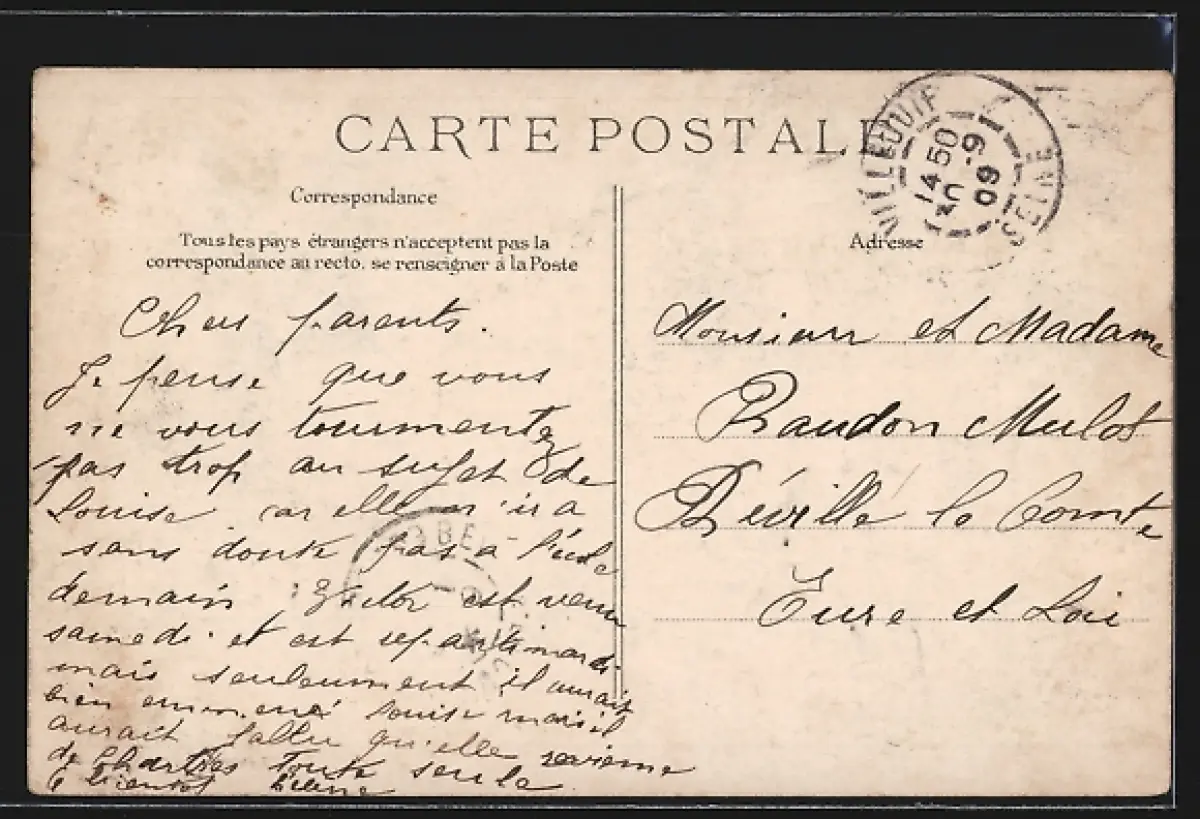 CARTE POSTALE
Correspondance
Tous les pays étrangers n'acceptent pas la
correspondance au recto. se renseigner à la Poste
Adresse
VILLEJUIF
14 50
30 -9
09
SEINE
Cher parents.
Je pense que vous
ne vous tourmentez
pas trop au sujet de
Louise. car elle n'ira
sans doute pas a l'école
demain. est venu
samedi. et est reparti mardi
mais seuleument il aurait
bien emmené Louise mais il
aurait fallu qu'elle revienne
de Chartres toute seule
a bientot
Monsieur et Madame
Raudon Mulot
Réville le Comte
Eure et Loir